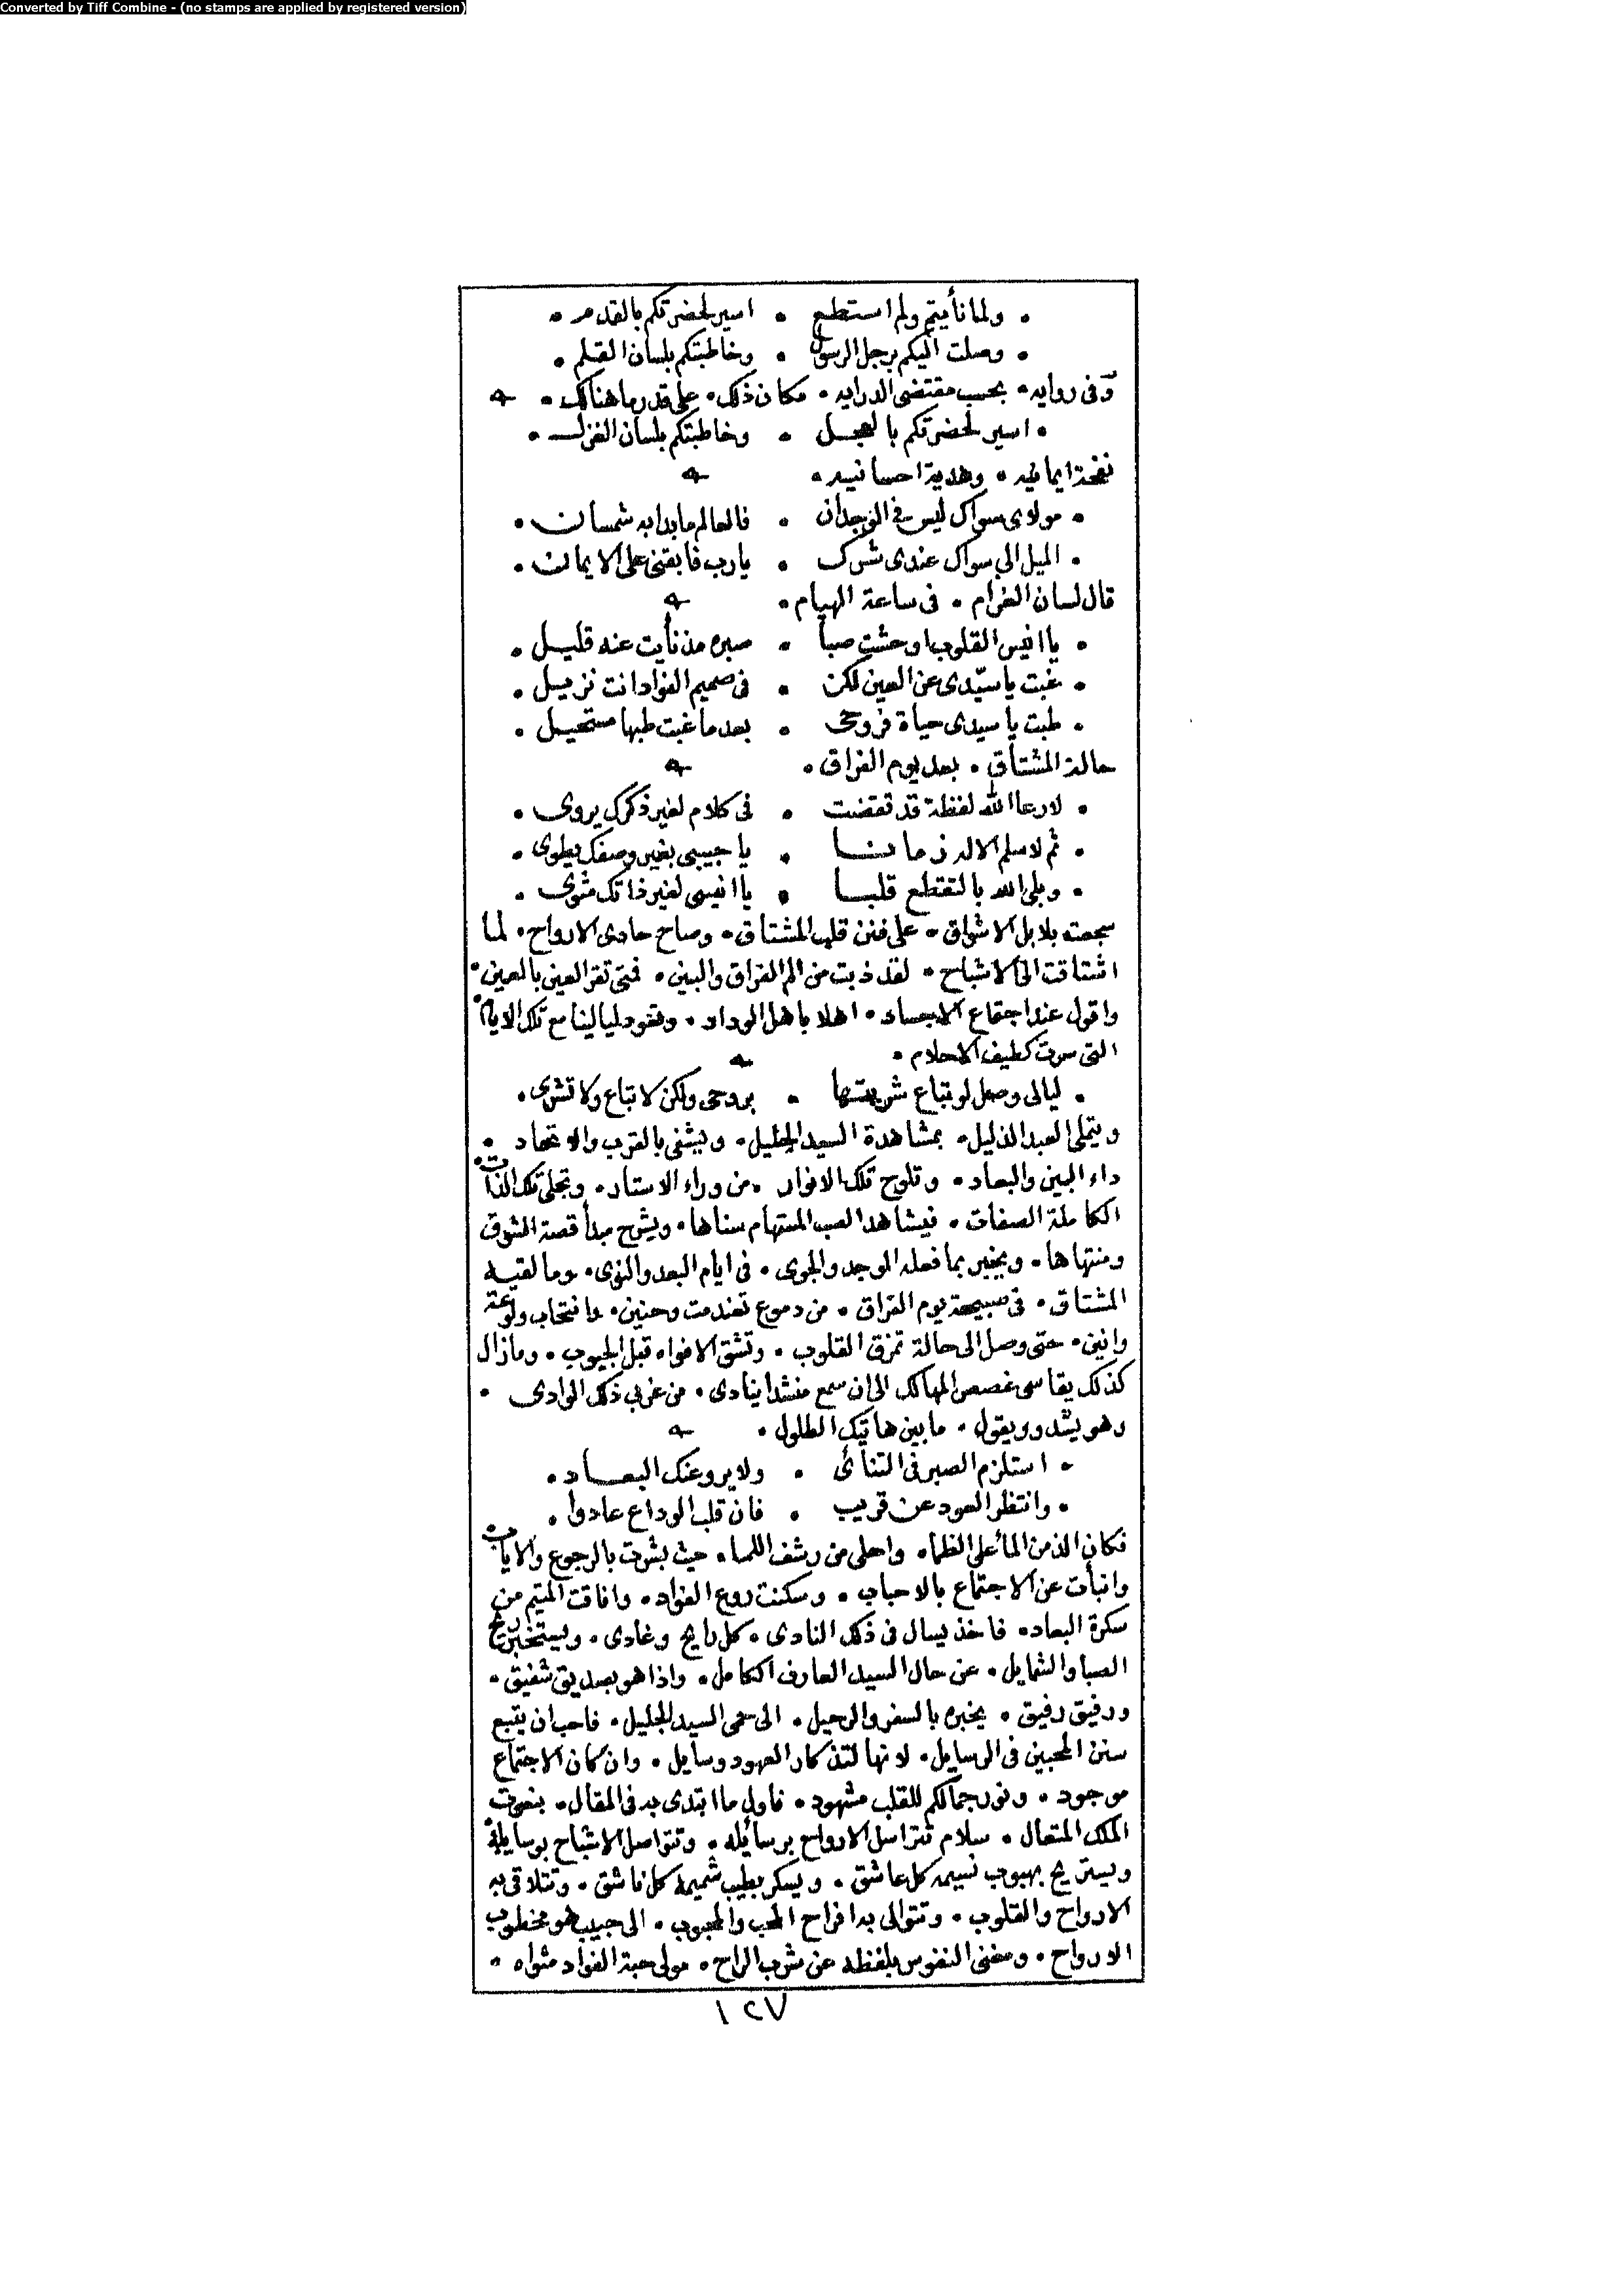 Converted by Tiff Combine - (no stamps are applied by registered version)
• ولما نأيتم ولم استطع • اسير لحضرتكم بالقدم •
• وصلت اليكم برجل الرسول • وخاطبتكم بلسان القلم •
وفى روايه • بحسب مقتضى الدرايه • مكان ذلك • على قدر ما هنالك •
• اسير لحضرتكم بالعجل • وخاطبتكم بلسان الغزل •
نفحة ايمانيه • وهدية احسانيه •
• مولاى سواك ليس فى الوجدان • فالعالم ما بدا به شمسان •
• الميل الى سواك عندى شرك • يارب فابقنى على الايمان •
قال لسان الغرام • فى ساعة الهيام •
• يا انيس القلوب اوحشت صبا • صبره مذ نأيت عنه قليل •
• غبت يا سيّدى عن العين لكن • فى صميم الفواد انت نزيل •
• طبت يا سيدى حياة فروحى • بعد ما غبت طبها مستحيل •
حالة المشتاق • بعد يوم الفراق •
• لارعا الله لفظة قد تقضت • فى كلام لغير ذكرك يروى •
• ثم لا سلم الاله زمانا • يا حبيبى بغير وصفك يطوى •
• وبلى الله بالتقطع قلبا • يا انيسى لغير ذاتك مثوى •
سجعت بلابل الاشواق • على فنن قلب المشتاق • وصاح حادى الارواح • لما
اشتاقت الى الاشباح • لقد ذبت من الم الفراق والبين • فمتى تقر العين بالعين •
واقول عند اجتماع الاجساد • اهلا باهل الوداد • وتعود ليالينا مع تلك الايام •
التى سرت كطيف الاحلام •
• ليالى وصل لو تباع شريتها • بروحى ولكن لا تباع ولا تشرى •
ويتملى العبد الذليل • بمشاهدة السيد الجليل • ويشفى بالقرب والاتحاد •
داء البين والبعاد • وتلوح تلك الانوار • من وراء الاستار • وتجلى تلك الذات •
الكاملة الصفات • فيشاهد الصب المستهام سناها • ويشرح مبدأ قصة الشوق
ومنتهاها • ويخبر بما فعله الوجد والجوى • فى ايام البعد والنوى • وما لقيه
المشتاق • فى صبيحة يوم الفراق • من دموع وحنين • وانتحاب ولوعة
وانين • حتى وصل الى حالة تمزق القلوب • وتشق الافواه قبل الجيوب • ومازال
كذلك يقاسى غصص المهالك الى ان سمع منشدا ينادى • من غربى ذلك الوادى •
وهو يشدو ويقول • ما بين هاتيك الطلول •
• استلزم الصبر فى التنائى • ولا يروعنك البعاد •
• وانتظر العود عن قريب • فان قلب الوداع عادوا •
فكان الذ من الماء على الظماء • واحلى من رشف اللما • حيث بشرت بالرجوع والاياب
وانبأت عن الاجتماع بالاحباب • وسكنت روع الفواد • وافاقت المتيم من
سكرة البعاد • فاخذ يسال فى ذلك النادى • كل رايح وغادى • ويستخبر ريح
الصبا والشمايل • عن حال السيد العارف الكامل • واذا هو بصديق شفيق •
ورفيق رفيق • يخبره بالسفر والرحيل • الى حمى السيد الجليل • فاحب ان يتبع
سنن المحبين فى الرسايل • لانها لتذكار العهود وسايل • وان كان الاجتماع
موجود • ونور جمالكم للقلب مشهود • فاول ما ابتدى به فى المقال • بنعوت
الملك المتعال • سلام تتراسل الارواح برسائله • وتتواصل الاشباح بوسايله
ويستريح بهبوب نسيمه كل عاشق • ويسكر بطيب شميمه كل ناشق • وتتلاقى به
الارواح والقلوب • وتتوالى به افراح المحب والمحبوب • الى حبيب هو مخطوب
الارواح • ومغنى النفوس بلفظه عن شرب الراح • مولى حبة الفواد مثواه •
١٢٧